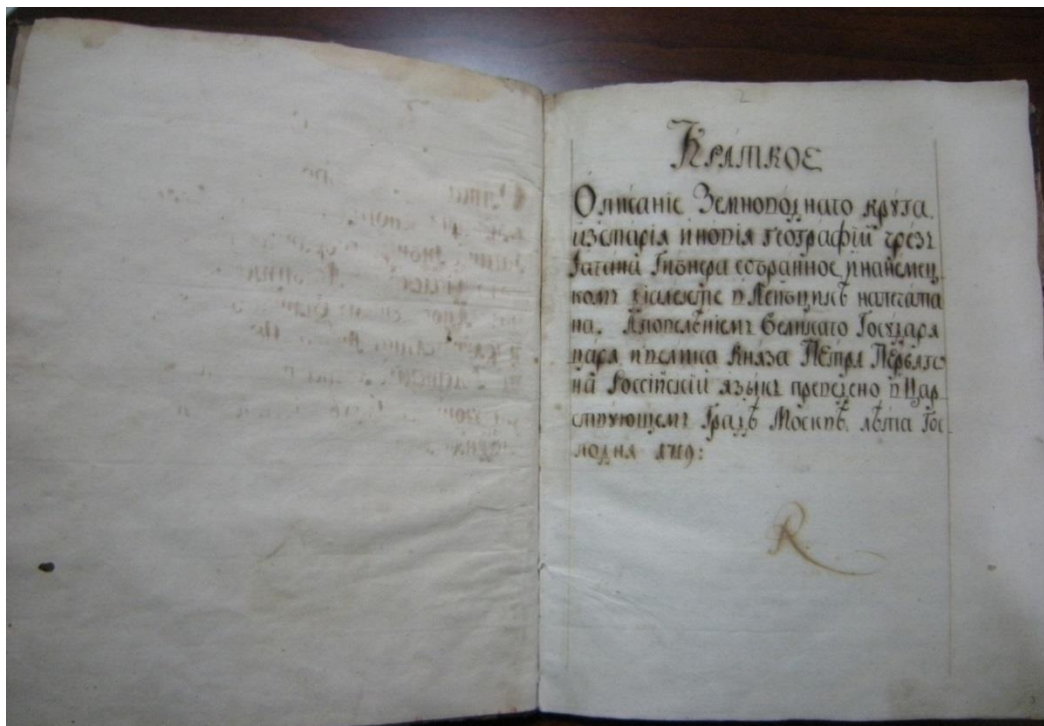 2
Краткое
Описание Земноводнаго круга.
изстарыя иновыя географiи чрезъ
Iагана Гибнера собранное, инанемец
комъ дiалектѣ вЛепъцикѣ напечата
на. Аповелѣнiемъ Великаго Государя
царя ивелика Князя Петра Перваго
на Россiйскiй языкъ преведено вЦар
ствующемъ Градѣ Москвѣ. лѣта Гос
подня 1719: